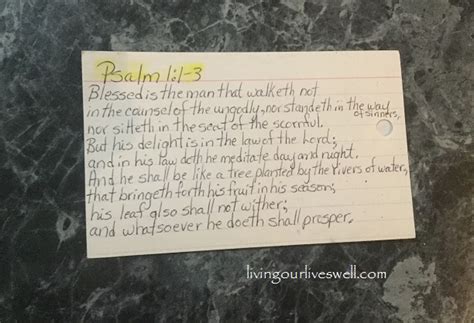 Psalm 1:1-3
Blessed is the man that walketh not
in the counsel of the ungodly, nor standeth in the way
of sinners,
nor sitteth in the seat of the scornful.
But his delight is in the law of the Lord;
and in his law doth he meditate day and night.
And he shall be like a tree planted by the rivers of water,
that bringeth forth his fruit in his season;
his leaf also shall not wither;
and whatsoever he doeth shall prosper.
livingourliveswell.com